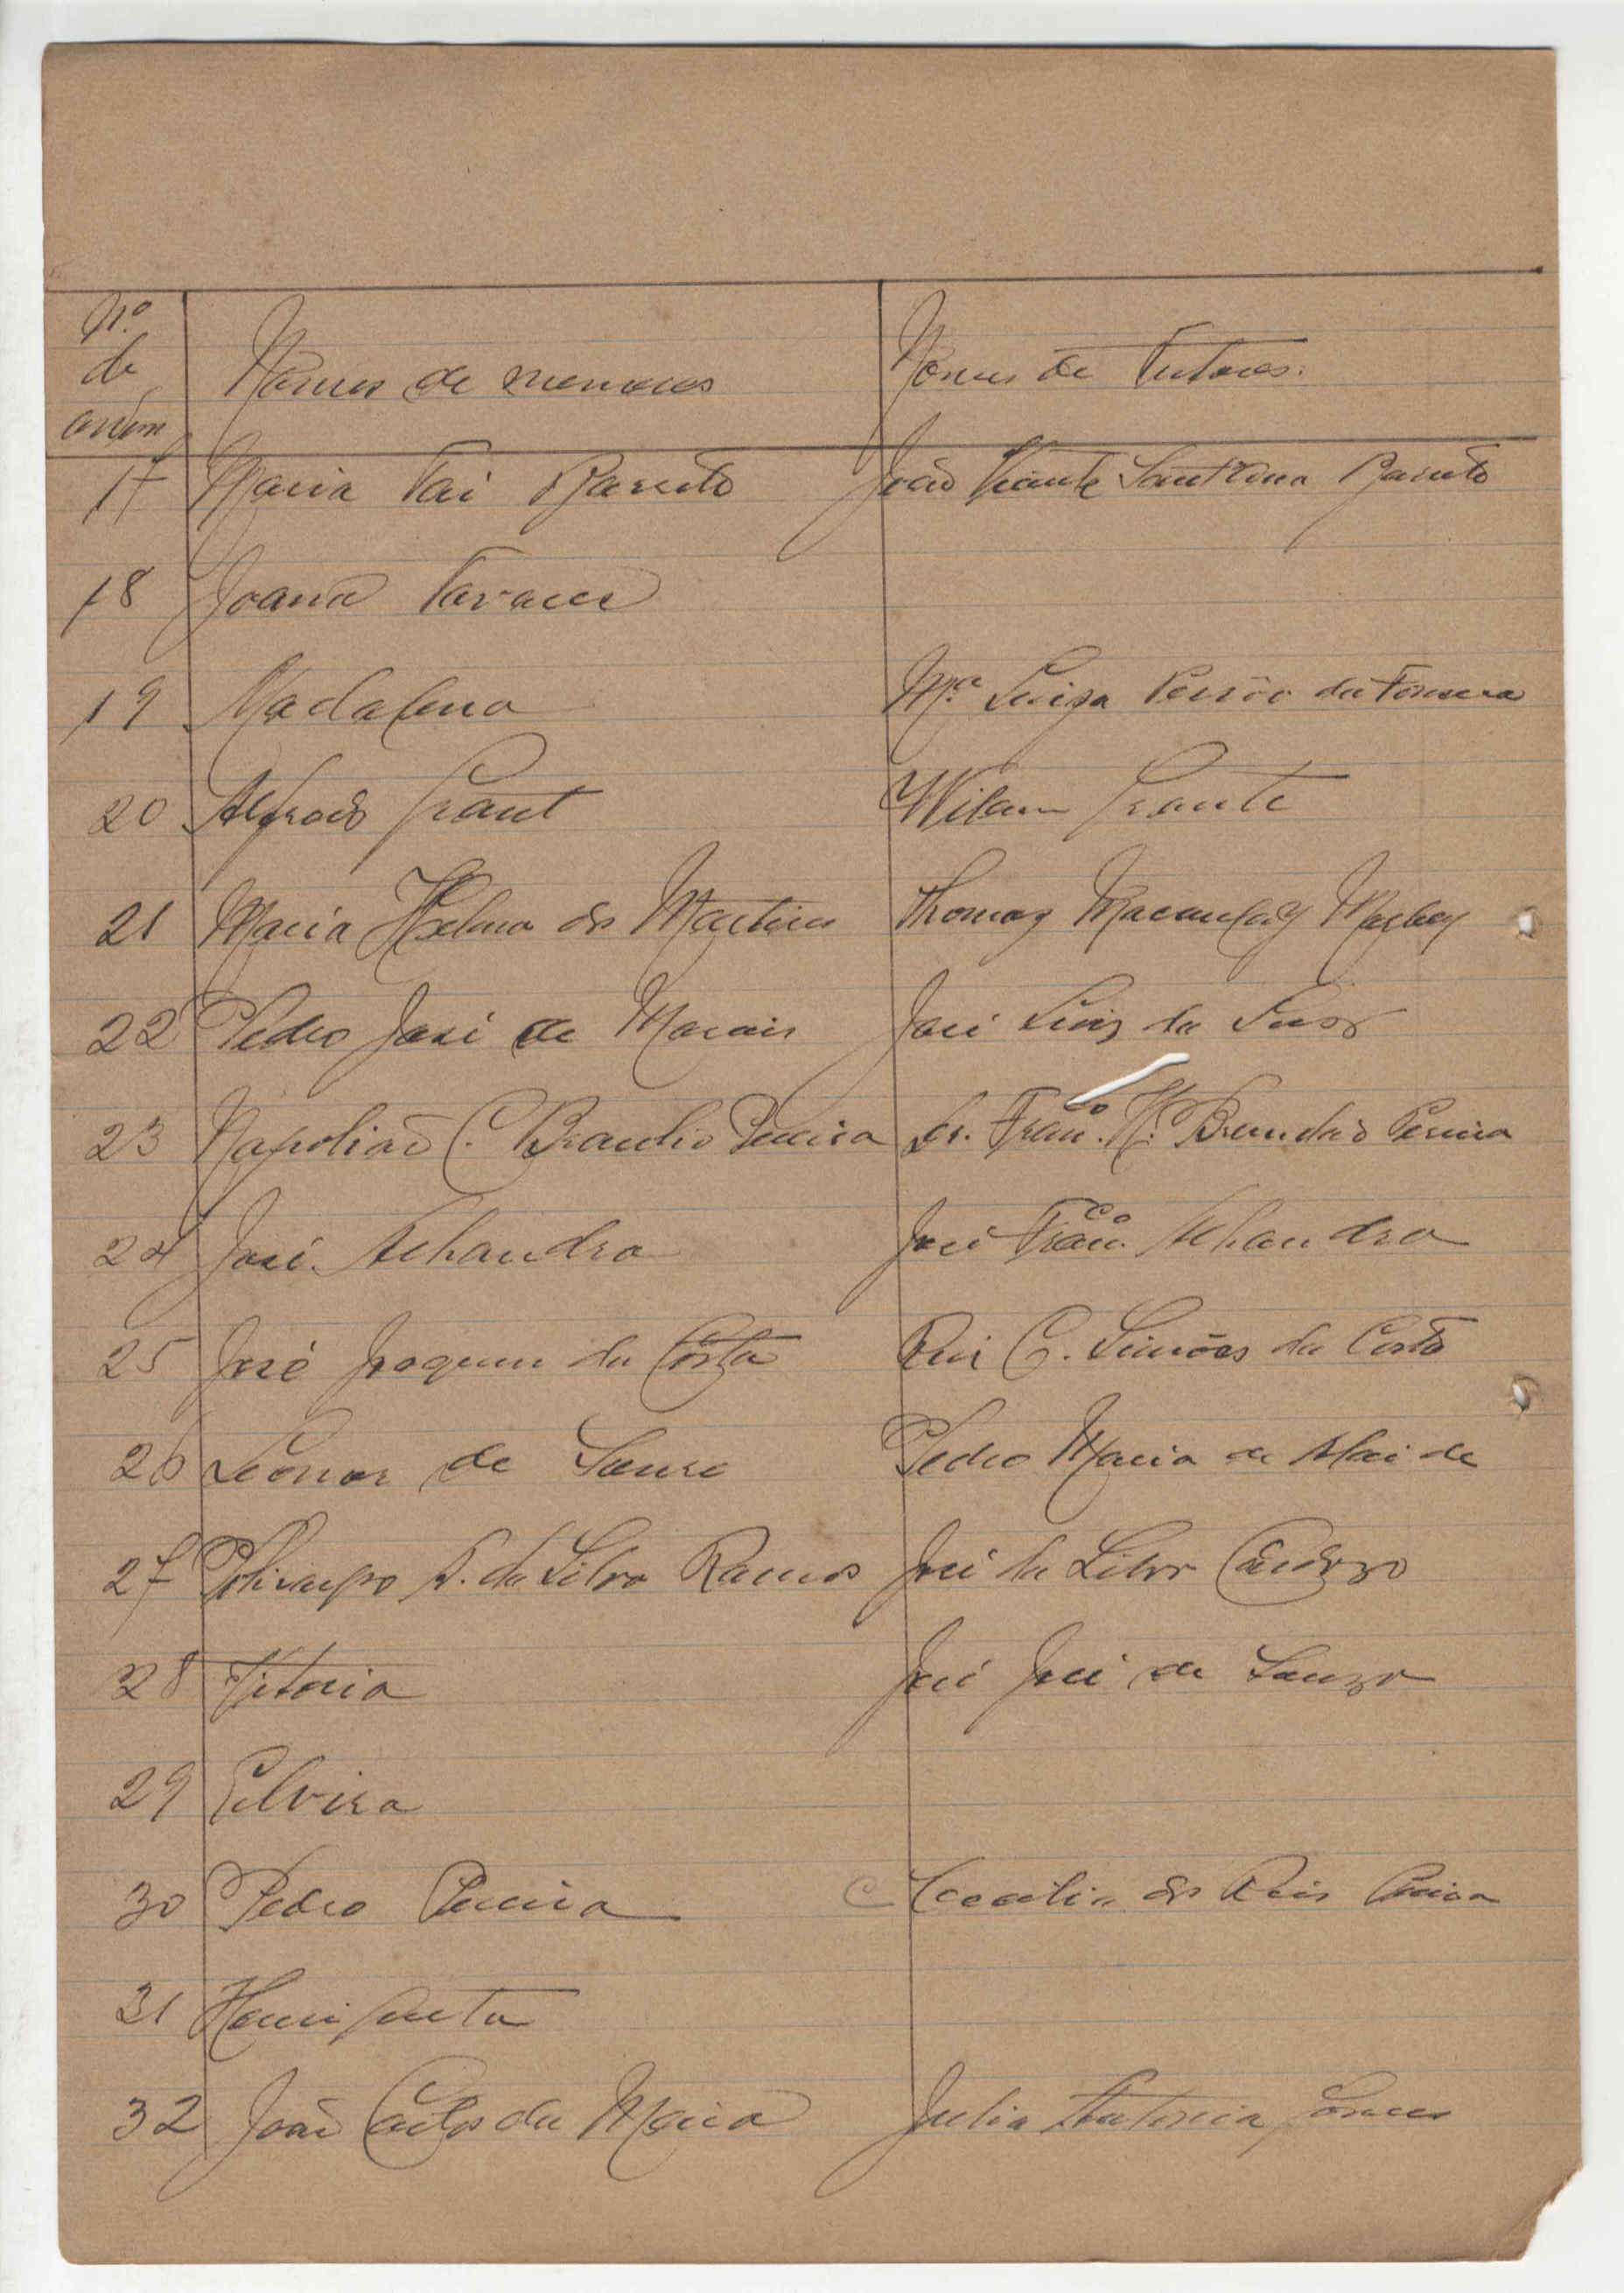 Nº de ordem Nomes de menores Nomes de Tutores.
17 Maria Vai Barreto João Vicente Sant'Anna Barreto
18 Joana Tavares
19 Madalena Mª Luiza da Fonseca
20 Alfredo Grant Wilam Grante
21 Maria Helena dos Martires Thomaz Macaulay
22 Pedro José de Morais José Luiz da
23 Napolião C. Brandão Pereira Dr. Franco. H. Brandão Pereira
24 José Alhandra José Franco. Alhandra
25 José Joaquim da Costa Rui C. Simões da Costa
26 Leonor de Souza Pedro Maria de
27 Policarpo A. da Silva Ramos José da Silva Cardozo
28 Vitoria José José de Souza
29 Elvira
30 Pedro Pereira Cecilia dos Reis Pereira
31 Henriqueta
32 João Carlos da Maia Julia Antonia Gomes